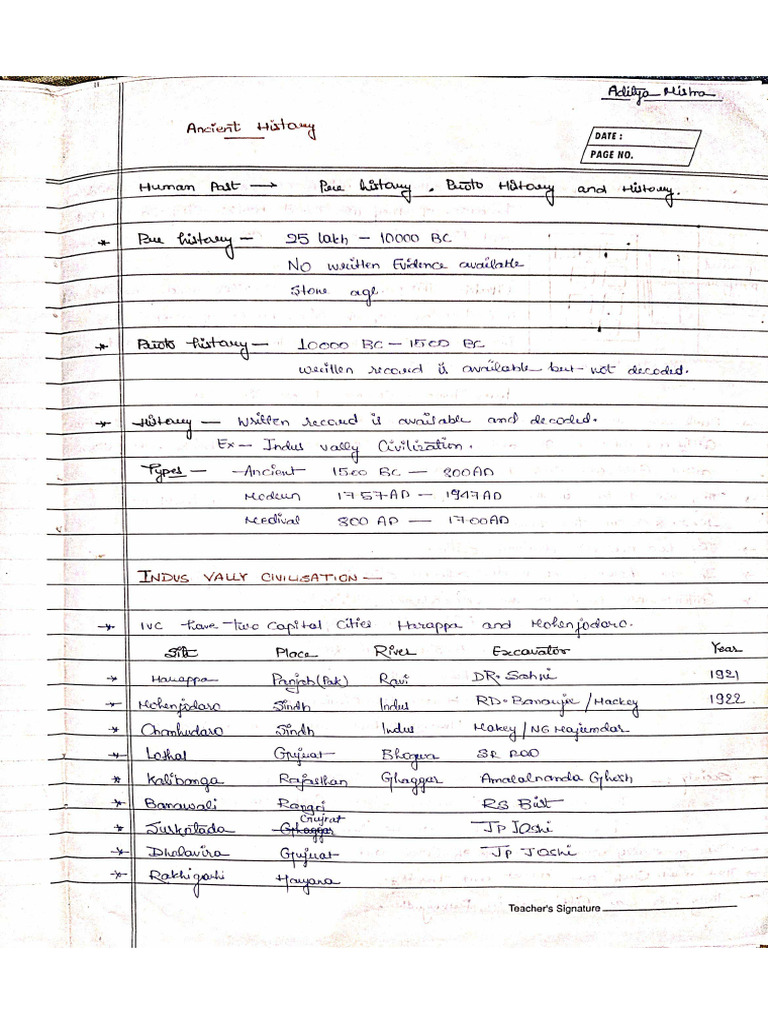 Aditya Mishra
Ancient History
DATE :
PAGE NO.
Human Past → Pre history, Proto History and History.
* Pre history - 25 lakh - 10000 BC
No written Evidence available
Stone age
* Proto history - 10000 BC - 1500 BC
written record is available but not decoded.
* History - Written record is available and decoded.
Ex - Indus vally Civilization.
Types - Ancient 1500 BC - 800AD
Modern 1757AD - 1947AD
Medival 800 AD - 1700AD
INDUS VALLY CIVILISATION -
* IVC have two Capital Cities Harappa and Mohenjodaro.
Site Place River Excavator Year
* Harappa Panjab (Pak) Ravi DR. Sahni 1921
* Mohenjodaro Sindh Indus RD. Banarjie / Mackey 1922
* Chanhudaro Sindh Indus Makey / NG Majumdar
* Lothal Gujurat Bhogwa SR RAO
* Kalibanga Rajasthan Ghaggar Amalalnanda Ghosh
* Banawali Rangoi RS Bist
* Surkotada Ghaggar Gnujrat JP Joshi
* Dholavira Gujurat JP JOshi
* Rakhigarhi Haryana
Teacher's Signature